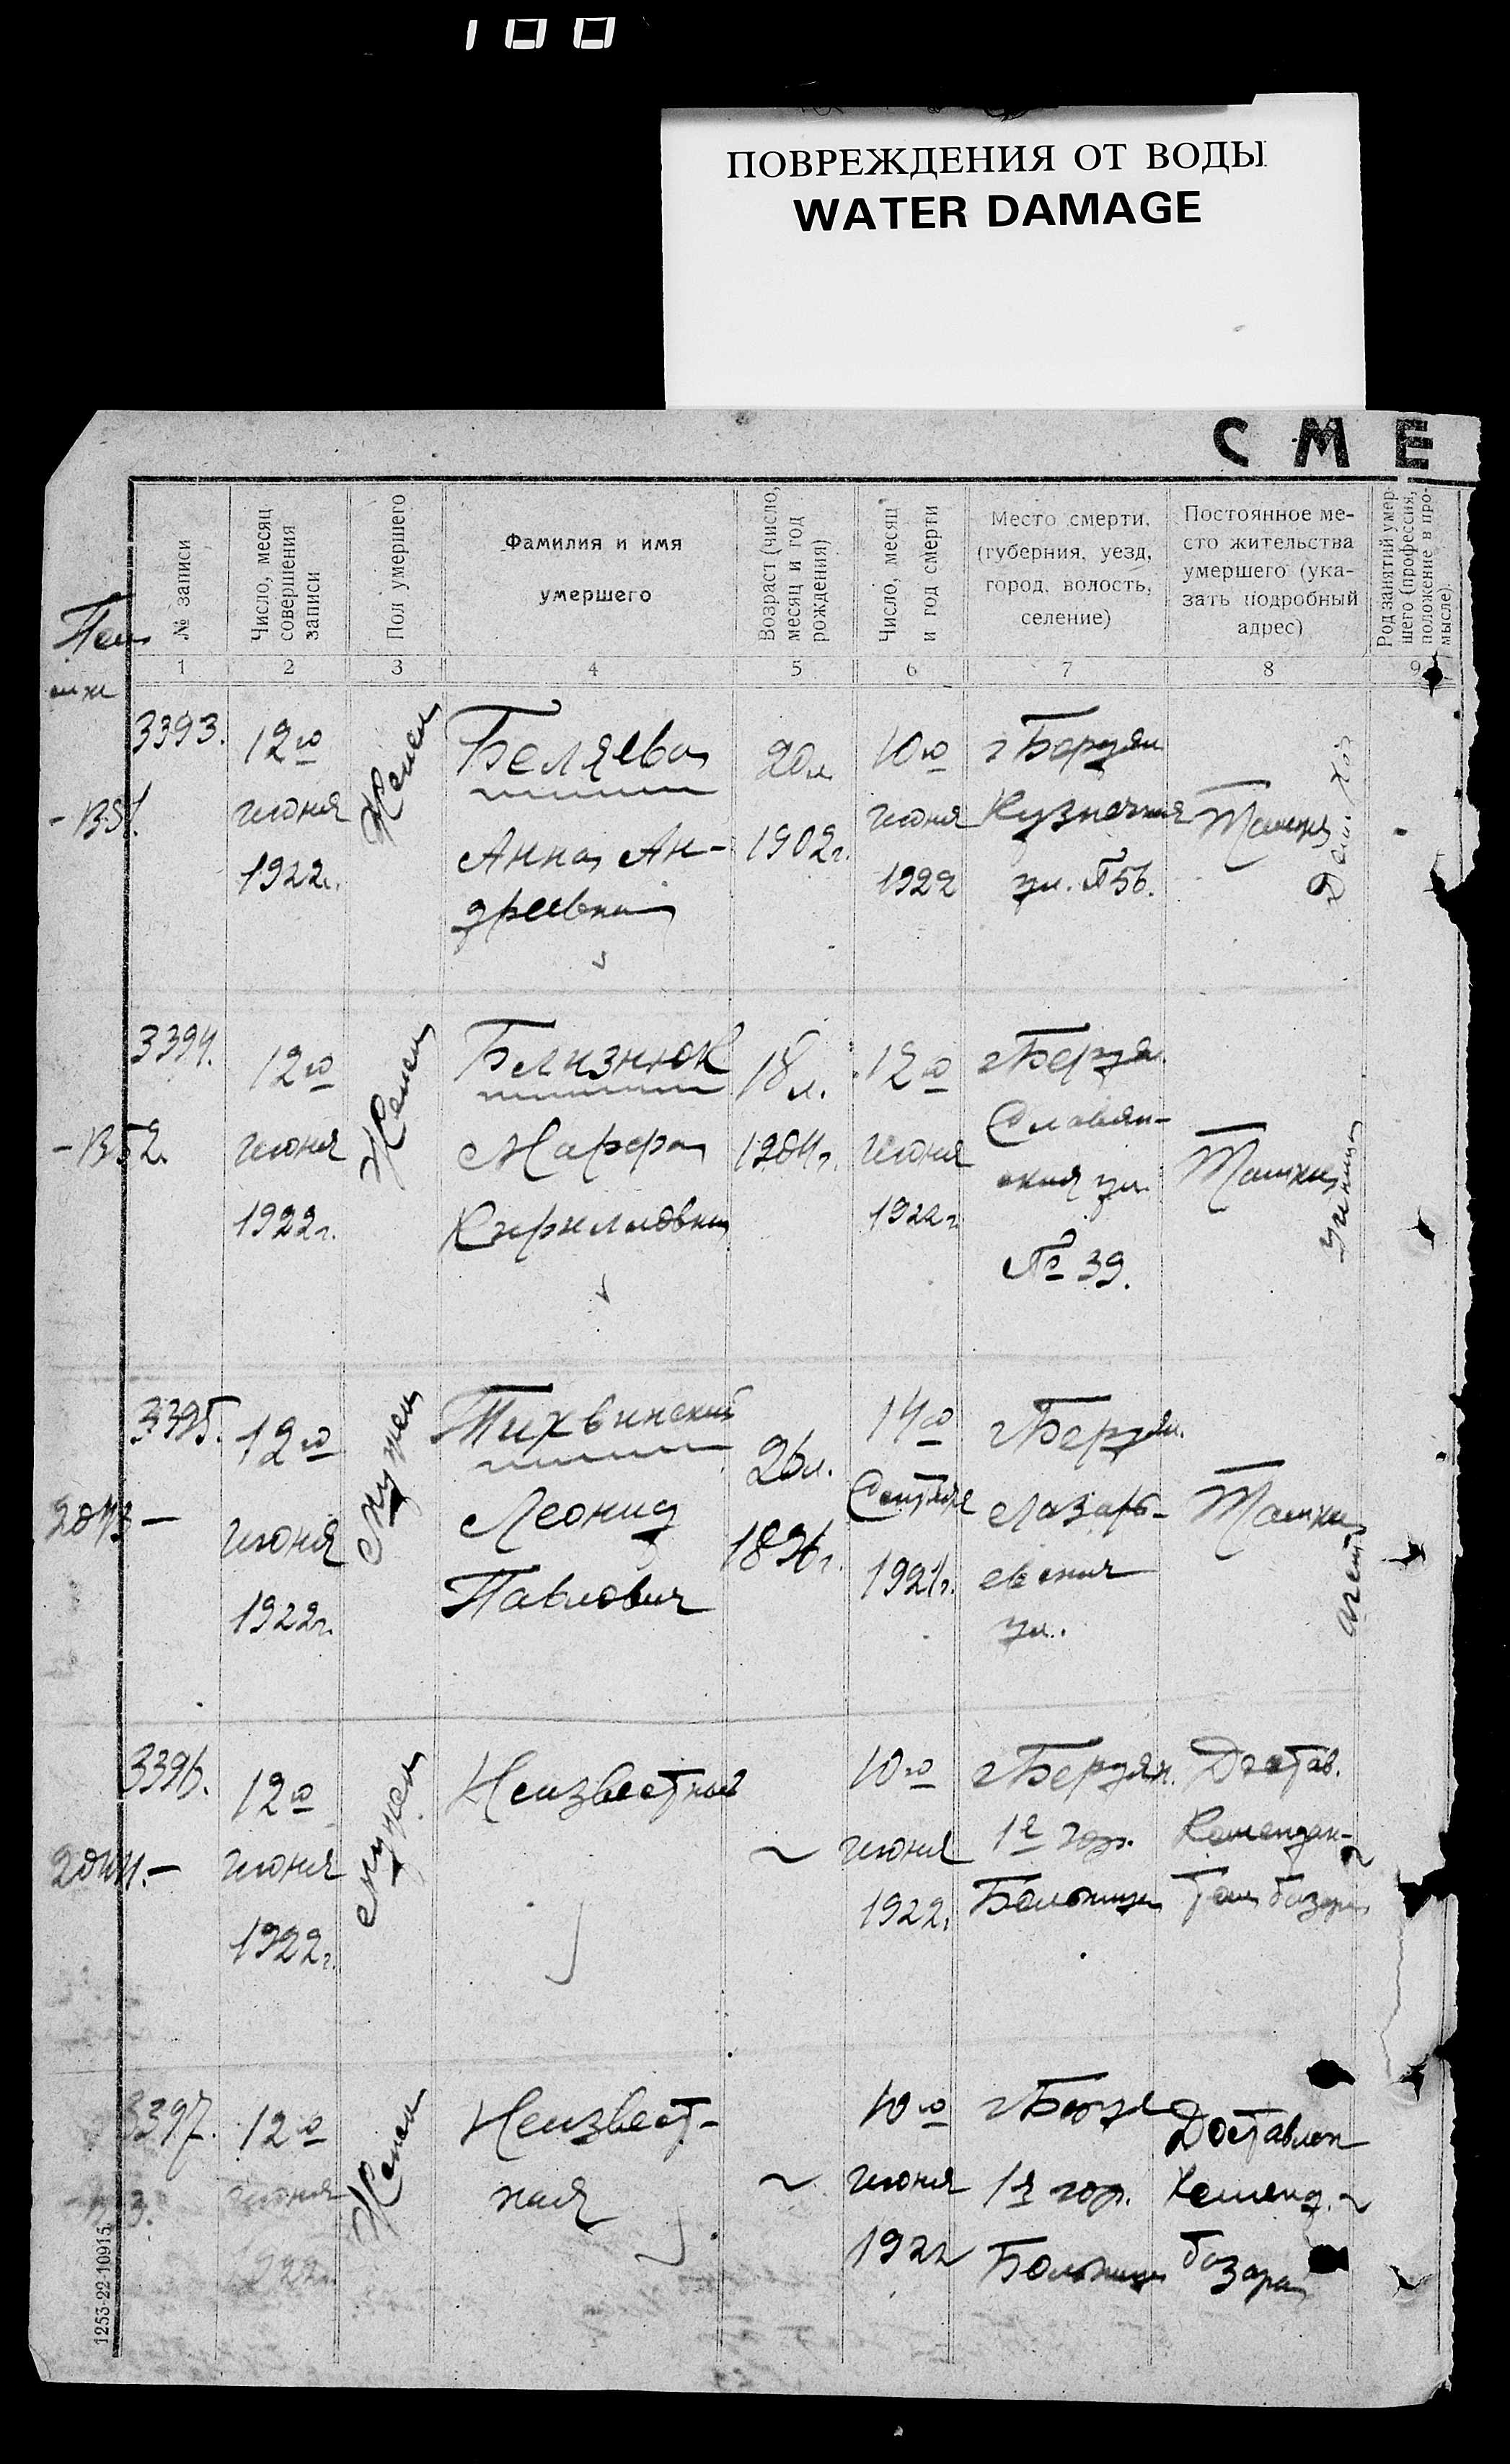 100
ПОВРЕЖДЕНИЯ ОТ ВОДЫ
WATER DAMAGE
СМЕ
№ записи
Число, месяц
совершения
записи
Пол умершего
Фамилия и имя
умершего
Возраст (число,
месяц и год
рождения)
Число, месяц
и год смерти
Место смерти,
(губерния, уезд,
город, волость,
селение)
Постоянное ме-
сто жительства
умершего (ука-
зать подробный
адрес)
Род занятий умер-
шего (профессия,
положение в про-
мысле).
1 2 3 4 5 6 7 8 9
3393.
12го
июня
1922г.
Женск
Беляева
Анна Ан-
дреевна
20л
1902г.
10го
июня
1922
г Бердян
Кузнечная
ул. №56.
Домхоз
3394.
12го
июня
1922г.
Женск
Близнюк
Марфа
Кирилловна
18л.
1904г.
12го
июня
1922г
г Бердя.
Славян-
ская ул.
№ 39.
Ученица
3395.
12го
июня
1922г.
Мужск
Тихвинский
Леонид
Павлович
26л.
1896г.
14го
1921г.
г Бердян.
Лазарь-
евская
ул.
агент
3396.
2044.–
12го
июня
1922г.
Мужск
Неизвестный
~
10го
июня
1922г
г Бердян.
1я гор.
Больница
Достав.
Комендан-
том базара
~
3397.
12го
июня
1922
Женск
Неизвест-
ная
~
10го
июня
1922
1я гор.
Больница
Доставлен
Коменд.
базара
~
1253-22 10915.